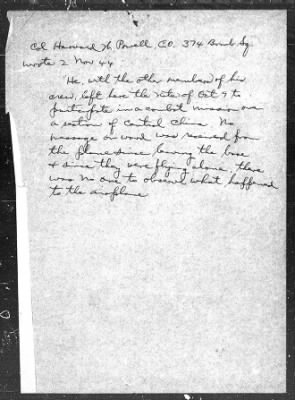 Col Harward H. Powell, C.O. 374 Bomb Sq.
wrote 2 Nov 44
"He, with the other members of his
crew, left here the nite of Oct 9 to
participate in a combat mission over
a section of Central China. No
message or word was received from
the plane since leaving the base
& since they were flying alone, there
was no one to observe what happened
to the airplane